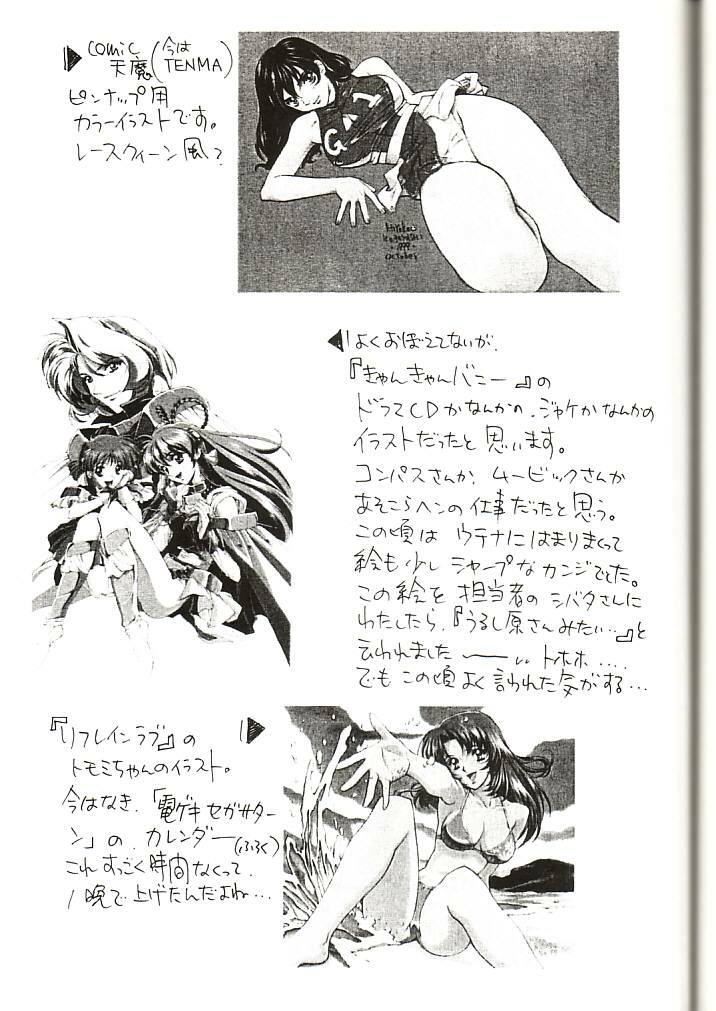 comic
天魔(今はTENMA)
ピンナップ用
カラーイラストです。
レースクィーン風?
GAT
Hirokou
1999
october
よくおぼえてないが、
『きゃんきゃんバニー』の
ドラマCDかなんかの、ジャケかなんかの
イラストだったと思います。
コンパスさんか、ムービックさんか
あそこらへンの仕事だったと思う。
この頃は ウテナにはまりまくって
絵も少し シャープなカンジでした。
この絵を 担当者の シバタさんに
わたしたら、『うるし原さんみたい…』と
云われました ─── トホホ....
でも この頃 よく言われた気がする…
『リフレインラブ』の
トモミちゃんのイラスト。
今はなき、「電ゲキセガサター
ン」の カレンダー(ふろく)
これすっごく時間なくって、
1晩で上げたんだよね…